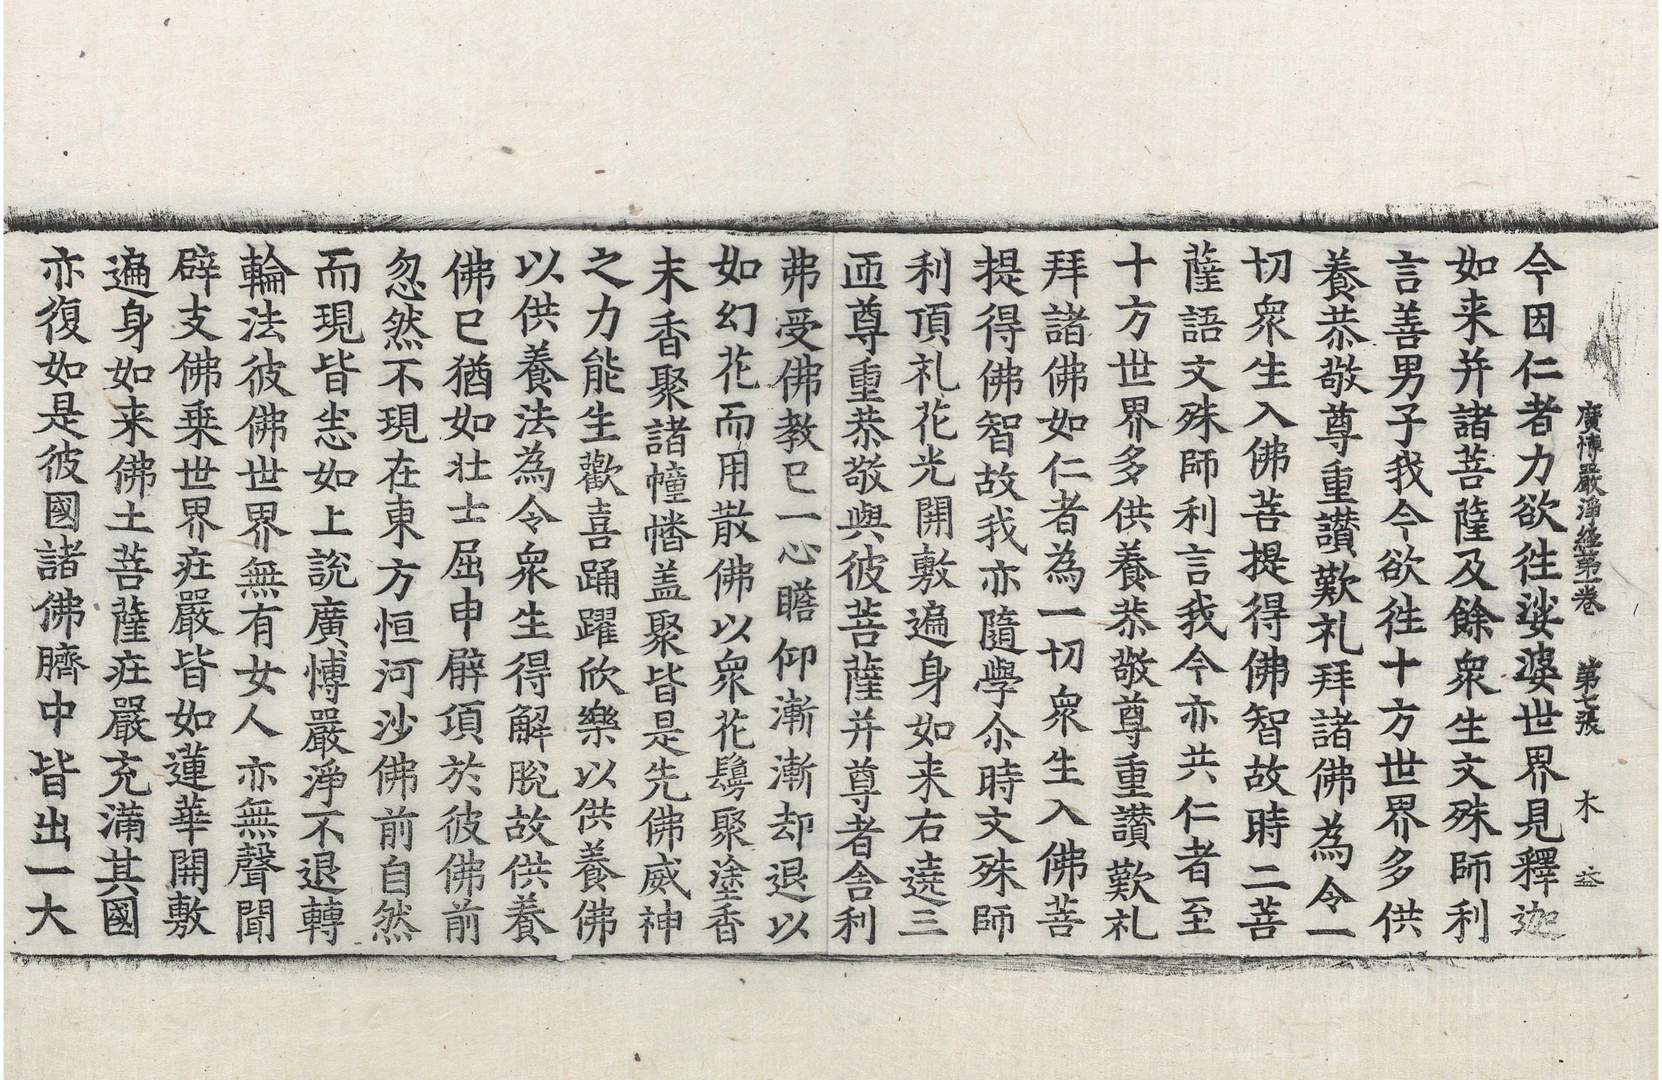 廣博嚴淨經第一卷 第七張 木 益
今因仁者力欲徃娑婆世界見釋迦
如来并諸菩薩及餘衆生文殊師利
言善男子我今欲徃十方世界多供
養恭敬尊重讃歎礼拜諸佛為令一
切衆生入佛菩提得佛智故時二菩
薩語文殊師利言我今亦共仁者至
十方世界多供養恭敬尊重讃歎礼
拜諸佛如仁者為一切衆生入佛菩
提得佛智故我亦隨學尒時文殊師
利頂礼花光開敷遍身如来右遶三
匝尊重恭敬與彼菩薩并尊者舍利
弗受佛教已一心瞻仰漸漸却退以
如幻花而用散佛以衆花鬘聚塗香
末香聚諸幢幡盖聚皆是先佛威神
之力能生歡喜踊躍欣樂以供養佛
以供養法為令衆生得解脫故供養
佛已猶如壮士屈申臂頃於彼佛前
忽然不現在東方恒河沙佛前自然
而現皆悉如上說廣博嚴淨不退轉
輪法彼佛世界無有女人亦無聲聞
辟支佛乗世界庄嚴皆如蓮華開敷
遍身如来佛土菩薩庄嚴充滿其國
亦復如是彼國諸佛臍中皆出一大